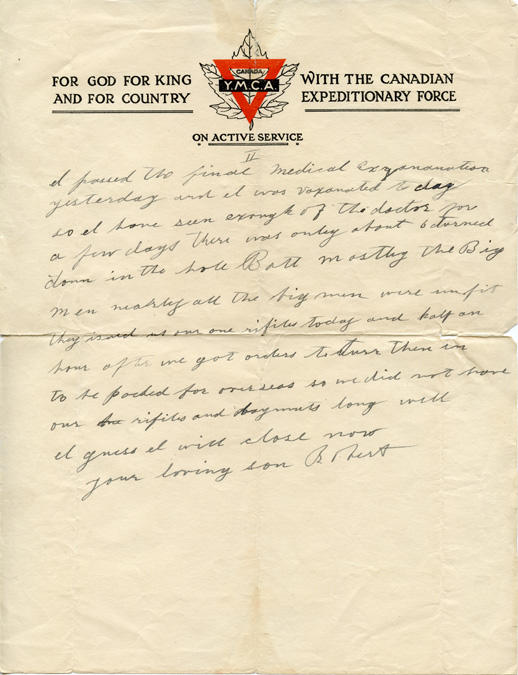 FOR GOD FOR KING
AND FOR COUNTRY
CANADA
Y.M.C.A.
WITH THE CANADIAN
EXPEDITIONARY FORCE
ON ACTIVE SERVICE
II
I passed the final Medical
yesterday and I was to day
so I have seen enough of the doctor for
a few days there was only about 6 turned
down in the hole Batt mostly the Big
Men nearly all the big men were unfit
they isaid us our one rifiles today and half an
hour after we got orders to turn then in
to be packed for overseas so we did not have
our rifiles and long will
I guess I will close now
your loving son Robert